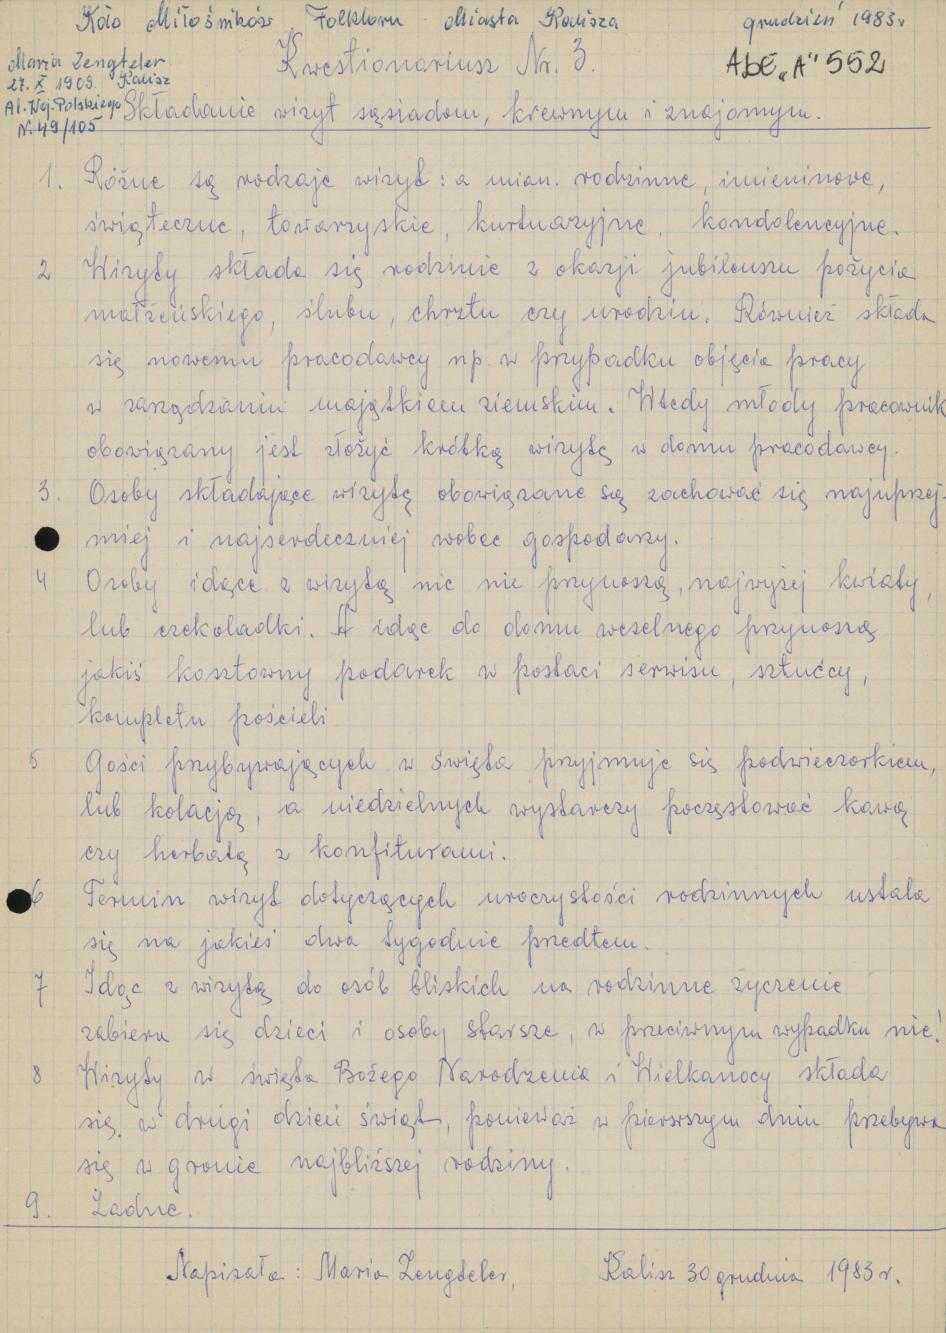 Koło Miłośników Folkloru Miasta Kalisza grudzień 1983r
Maria Zengteler
27. X 1909. Kalisz
Al. Woj. Polskiego
N. 49/105
Kwestionariusz Nr. 3.
AbE „A" 552
Składanie wizyt sąsiadom, krewnym i znajomym.
1. Różne są rodzaje wizyt: a mian. rodzinne, imieninowe,
świąteczne, towarzyskie, kurtuazyjne, kondolencyjne.
2 Wizyty składa się rodzinie z okazji jubileuszu pożycia
małżeńskiego, ślubu, chrztu czy urodzin. Również składa
się nowemu pracodawcy np. w przypadku objęcia pracy
w zarządzaniu majątkiem ziemskim. Wtedy młody pracownik
obowiązany jest złożyć krótką wizytę w domu pracodawcy.
3. Osoby składające wizytę obowiązane są zachować się najuprzej-
miej i najserdeczniej wobec gospodarzy.
4 Osoby idące z wizytą nic nie przynoszą, najwyżej kwiaty,
lub czekoladki. A idąc do domu weselnego przynoszą
jakiś kosztowny podarek w postaci serwisu, sztućcy,
kompletu pościeli
5 Gości przybywających w święta przyjmuje się podwieczorkiem,
lub kolacją, a niedzielnych wystarczy poczęstować kawą
czy herbatą z konfiturami.
6 Termin wizyt dotyczących uroczystości rodzinnych ustala
się na jakieś dwa tygodnie przedtem.
7 Idąc z wizytą do osób bliskich na rodzinne życzenie
zabiera się dzieci i osoby starsze, w przeciwnym wypadku nie!
8 Wizyty w święta Bożego Narodzenia i Wielkanocy składa
się w drugi dzień świąt, ponieważ w pierwszym dniu przebywa
się w gronie najbliższej rodziny.
9. Żadne.
Napisała: Maria Zengteler, Kalisz 30 grudnia 1983r.